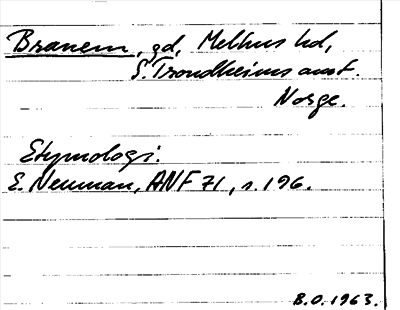 Branem, gd, Melhus hd,
S. Trondheims amt.
Norge.
Etymologi.
E. Neuman, ANF 71, s. 196.
B.O. 1963.